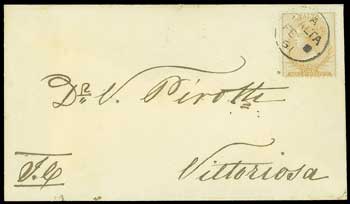 MALTA
Dr. V. Pirotta
T.Q
Vittoriosa